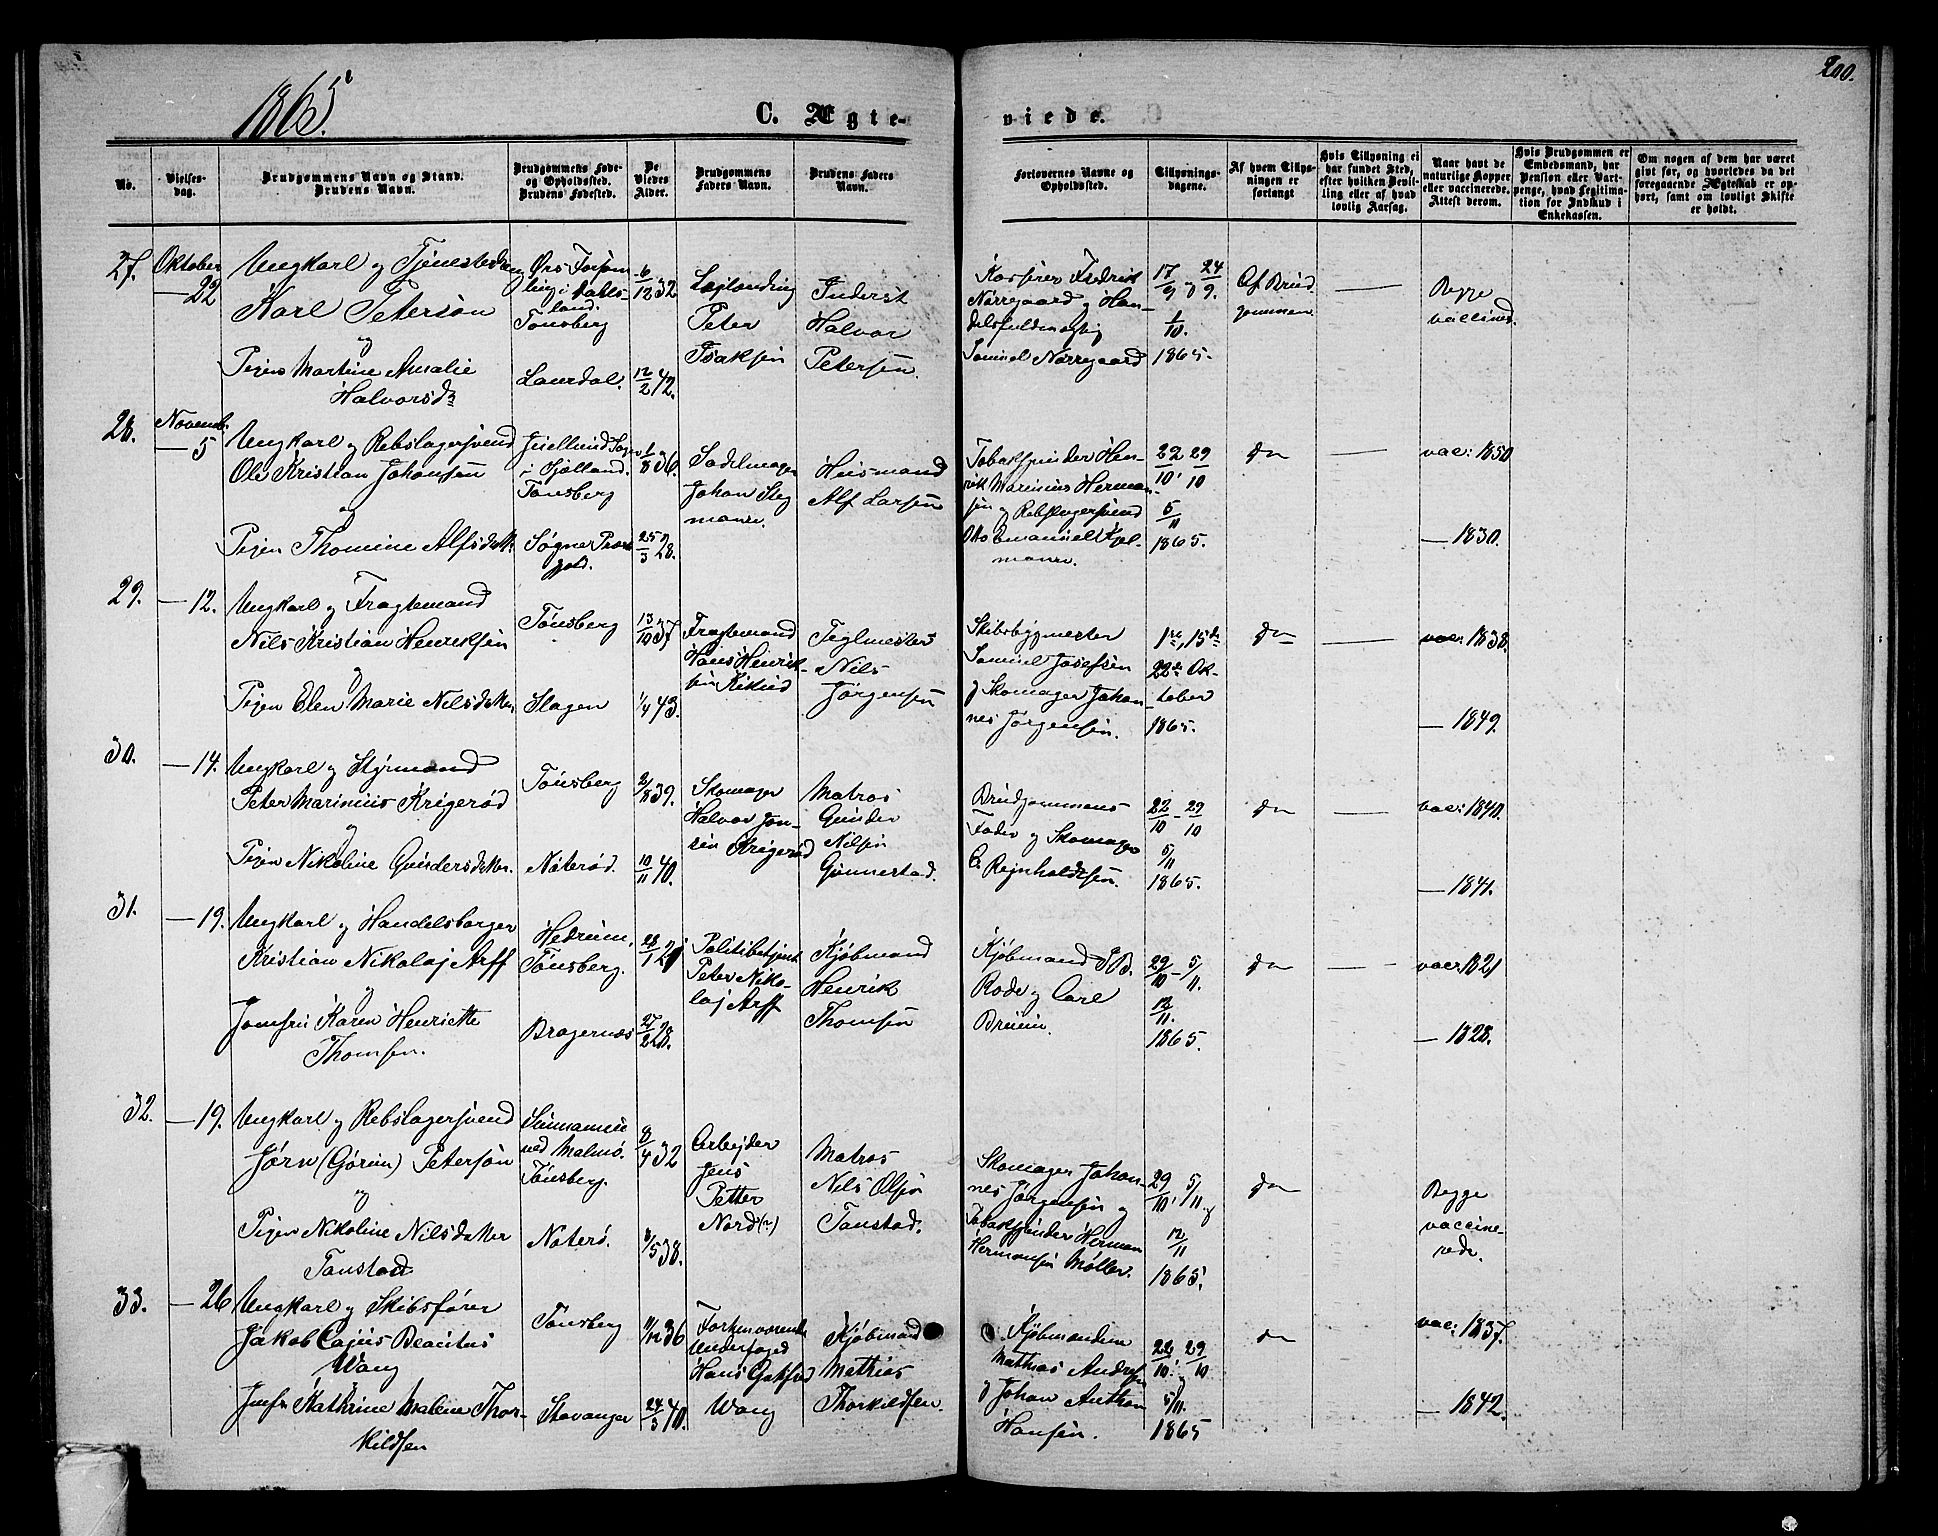 1865.
200.
C. Ægte-
viede.
No.
Vielses-
dag.
Brudgommens Navn og Stand.
Brudens Navn.
Brudgommens Føde-
og Opholdssted.
Brudens Fødested.
De
Viedes
Alder.
Brudgommens
Faders Navn.
Brudens Faders
Navn.
Forlovernes Navne og
Opholdssted.
Tillysnings-
dagene.
Af hvem Tillys-
ningen er
forlangt
Hvis Tillysning ei
har fundet Sted,
efter hvilken Bevil-
ling eller af hvad
lovlig Aarsag.
Naar havt de
naturlige Kopper
eller vaccinerede.
Attest derom.
Hvis Brudgommen er
Embedsmand, hvad
Pension eller Vart-
penge, hvad Legitima-
tion for Indskud i
Enkekassen.
Om nogen af dem har været
givt før, og hvorledes da det
foregaaende Ægteskab er op-
hørt, samt om lovligt Skifte
er holdt.
27.
Oktober
22
Ungkarl og Tjenestedreng
Karl Peterson
og
Pigen Martine Amalie
Halvorsd
Ørs Forsam-
ling i Dals-
land.
Tønsberg
Laurdal.
6/12 32
12/2 42.
Peter
Isaksen
Inderst
Halvor
Petersen.
Fredrik
Nørregaard og Han-
delsfuldmægtig
Samuel Nørregaard
17/9 og 24/9.
1/10.
1865.
Af Brud
gommen.
Begge
vaccined.
28.
Novemb.
5
Ungkarl og Rebslagersvend
Ole Kristian Johansen
og
Pigen Thomine Alfsdatter
i Sjælland.
Tønsberg
Søgne Præste-
gjeld.
1/8 36.
25/3 28.
Sadelmager
Johan Steg
mann.
Huusmand
Alf Larsen
Tobakspinder Hen-
rik Marinius Herman-
sen og Rebslagersvend
Otto Emanuel Kjel-
mann.
22/10, 29/10
5/11
1865.
do
vac: 1850
— 1830.
29.
— 12.
Ungkarl og Fragtemand
Nils Kristian Henriksen
og
Pigen Elen Marie Nilsdatter
Tønsberg
Slagen
13/10 37
1/4 43.
Fragtemand
Hans Henrik-
sen
Teglmester
Nils
Jørgensen
Skibsbygmester
Samuel Josefsen
og Skomager Johan-
nes Jørgensen.
1ste, 15de
22de Ok-
tober
1865.
do
vac: 1838.
— 1849.
30.
— 14.
Ungkarl og Styrmand
Peter Marinius Krigerød
og
Pigen Nikoline Gundersdatter.
Tønsberg
Nøterød.
2/8 39.
10/11 40.
Skomager
Halvor Jon-
sen Krigerød
Matros
Gunder
Nilsen
Gunnestad.
Brudgommens
Fader og Skomager
C. Rejnholdtsen.
22/10 - 29/10
5/11
1865.
do
vac: 1840.
— 1841.
31.
— 19.
Ungkarl og Handelsborger
Kristian Nikolaj Arff
og
Jomfru Karen Henriette
Thomsen.
Hedrum,
Tønsberg.
Bragernæs
28/1 21
27/2 28.
Politibetjent
Peter Niko-
laj Arff
Kjøbmand
Henrik
Thomsen
Kjøbmand P B.
Rode og Carl
Bruun.
29/10 - 5/11.
12/11.
1865.
do
vac: 1821
— 1828.
32.
— 19.
Ungkarl og Rebslagersvend
Jørn (Gørun) Peterson
og
Pigen Nikoline Nilsdatter
Tanstad
ved Malmø.
Tønsberg.
Nøterø.
8/4 32
6/5 38.
Arbejder
Jens
Petter
Nord(n)
Matros
Nils Olsen
Tanstad.
Skomager Johan-
nes Jørgensen og
Tobakspinder Herman
Hermansen Møller.
29/10, 5/11 og
12/11
1865.
do
Begge
vaccine-
rede.
33.
— 26
Ungkarl og Skibsfører
Jakob Cajus Beautus
Wang
Jomfr Kathrine Malene Thor-
kildsen
Tønsberg
Stavanger
11/12 36
24/3 40.
Forhenværende
Underfoged
Wang
Kjøbmand
Mathias
Thorkildsen.
Kjøbmændene
Mathias Andresen
og Johan Anthon
Hansen.
22/10, 29/10
5/11.
1865
do
vac: 1837.
— 1842.